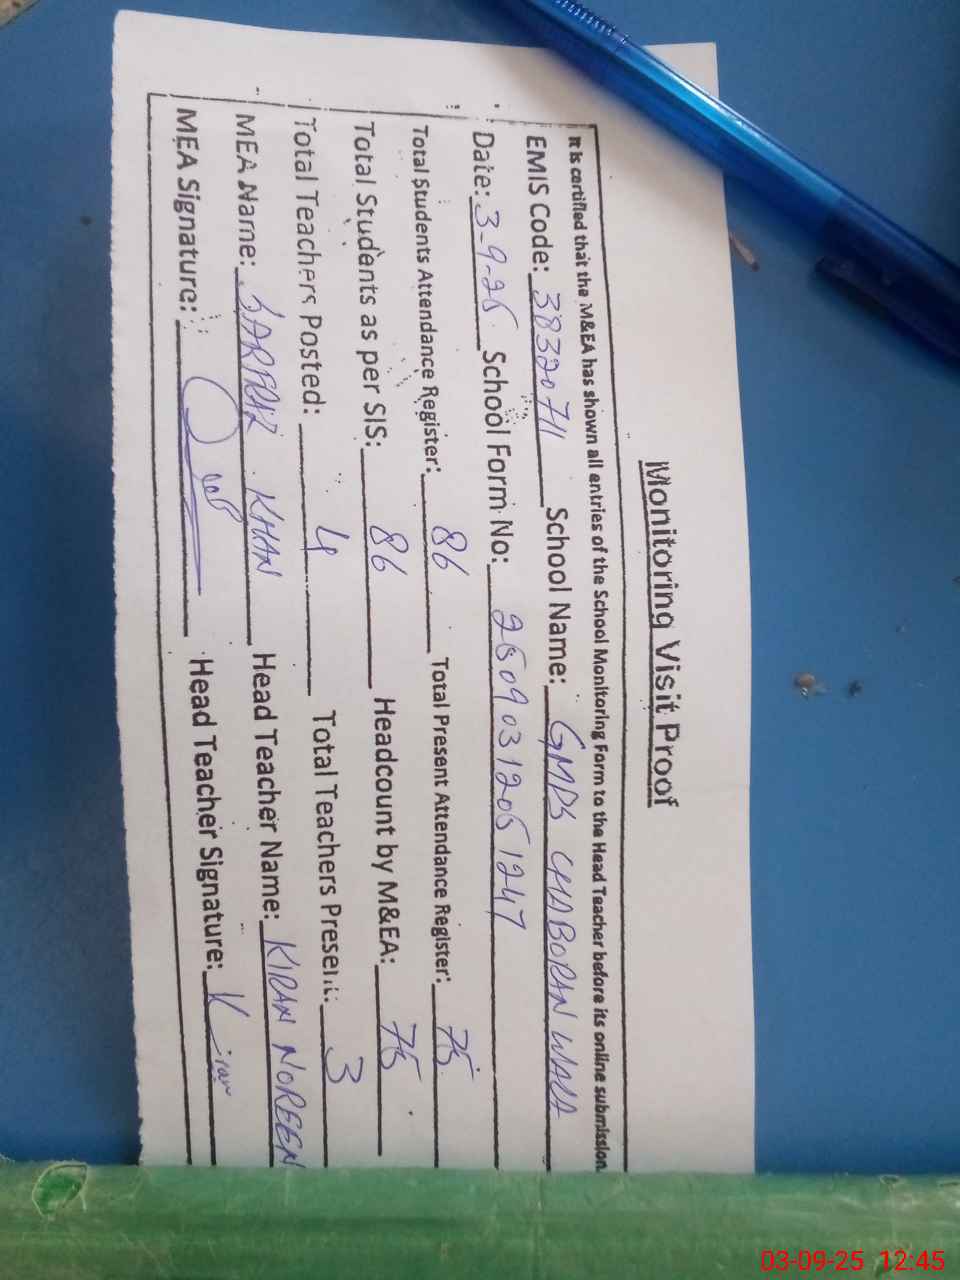 Monitoring Visit Proof
It is certified that the M&EA has shown all entries of the School Monitoring Form to the Head Teacher before its online submission.
EMIS Code: 38320711 School Name: GMPS CHABORAN WALA
Date: 3-9-25 School Form No: 25090312051247
Total Students Attendance Register: 86 Total Present Attendance Register: 75
Total Students as per SIS: 86 Headcount by M&EA: 75
Total Teachers Posted: 4 Total Teachers Present: 3
MEA Name: SARFRAZ KHAN Head Teacher Name: KIRAN NOREEN
MEA Signature: Head Teacher Signature: Kiran
03-09-25 12:45